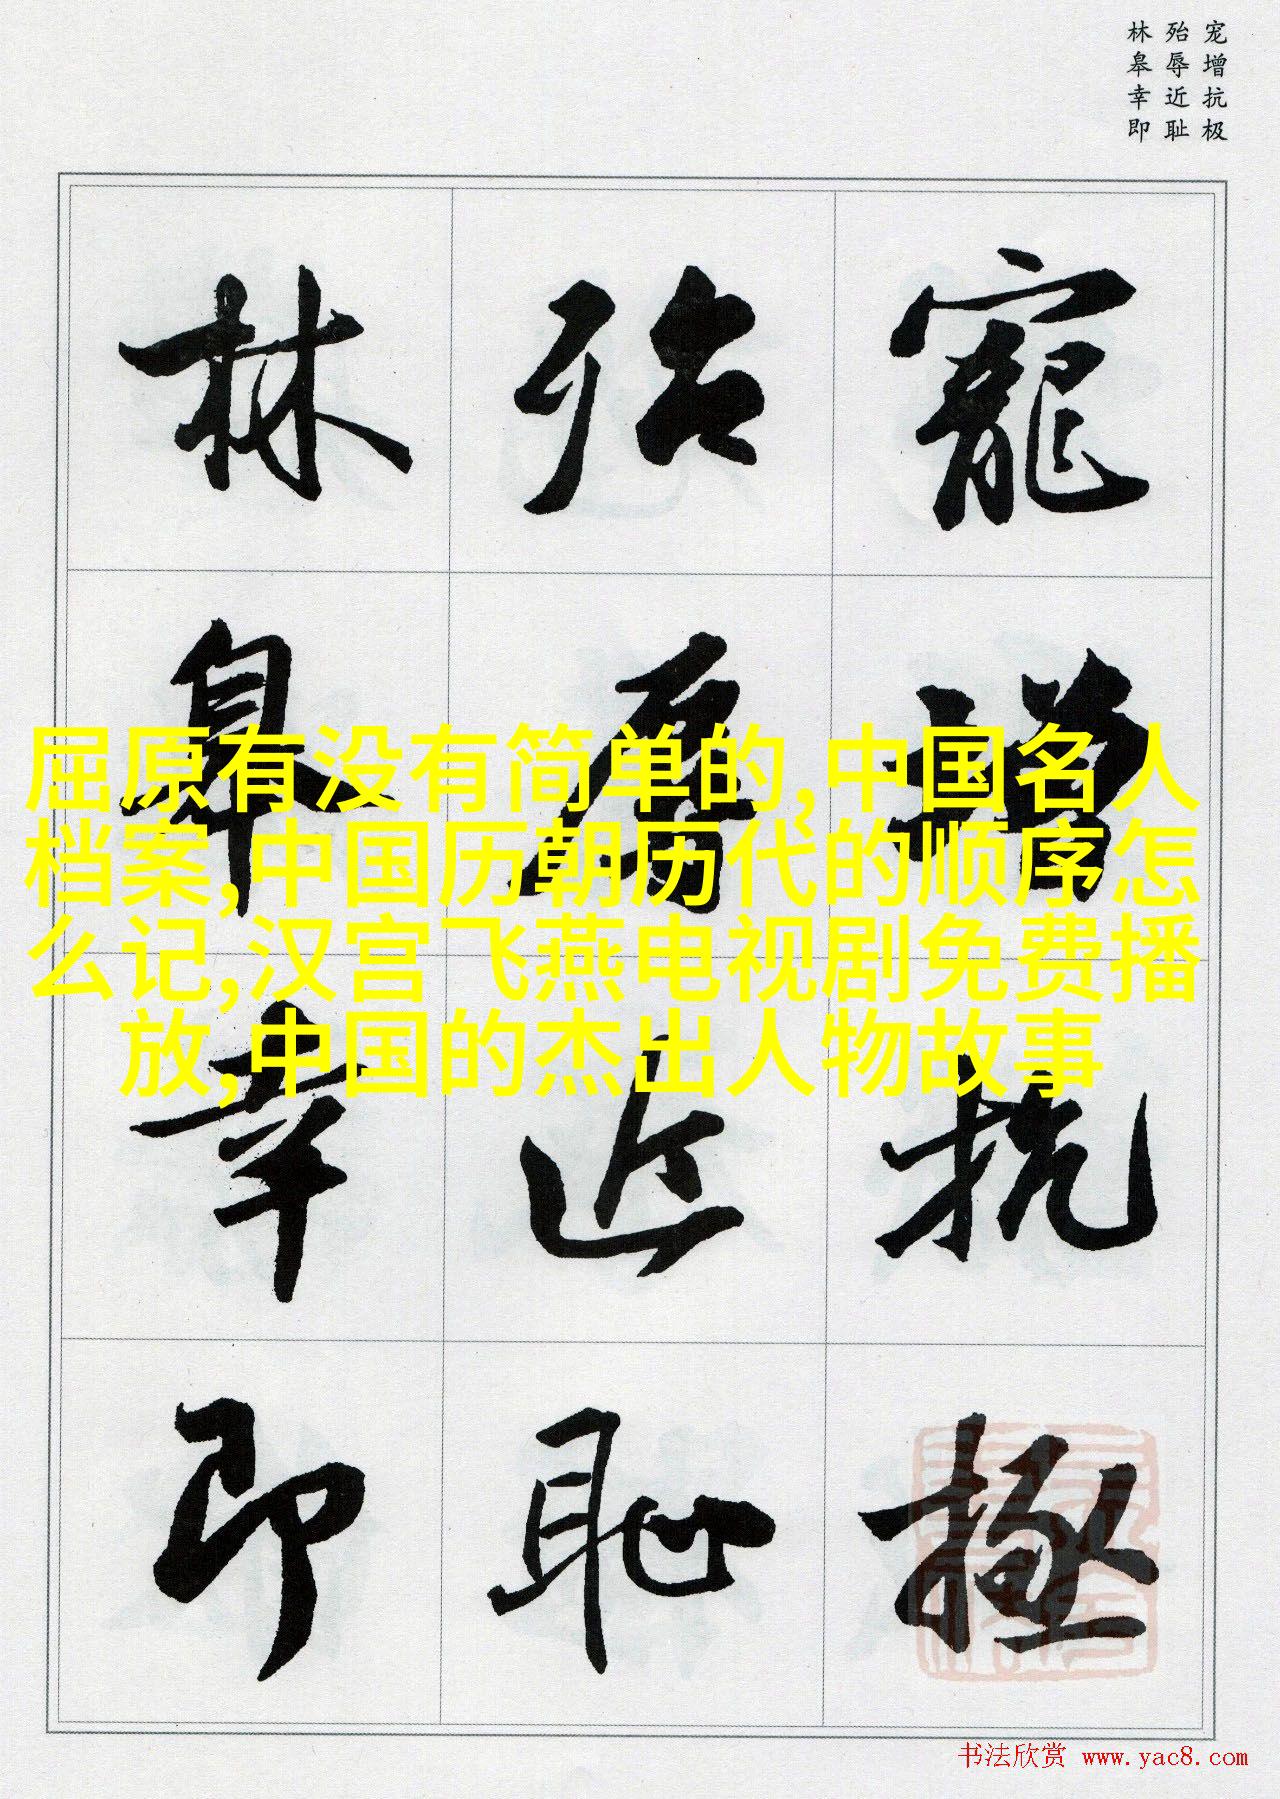 宠增抗极
殆辱近耻
林皋幸即
寵增抗極
殆辱近恥
林皋幸即
屈原有没有简单的,中国名人
档案,中国历朝历代的顺序怎
么记,汉宫飞燕电视剧免费播
放,中国的杰出人物故事
书法欣赏 www.yac8.com